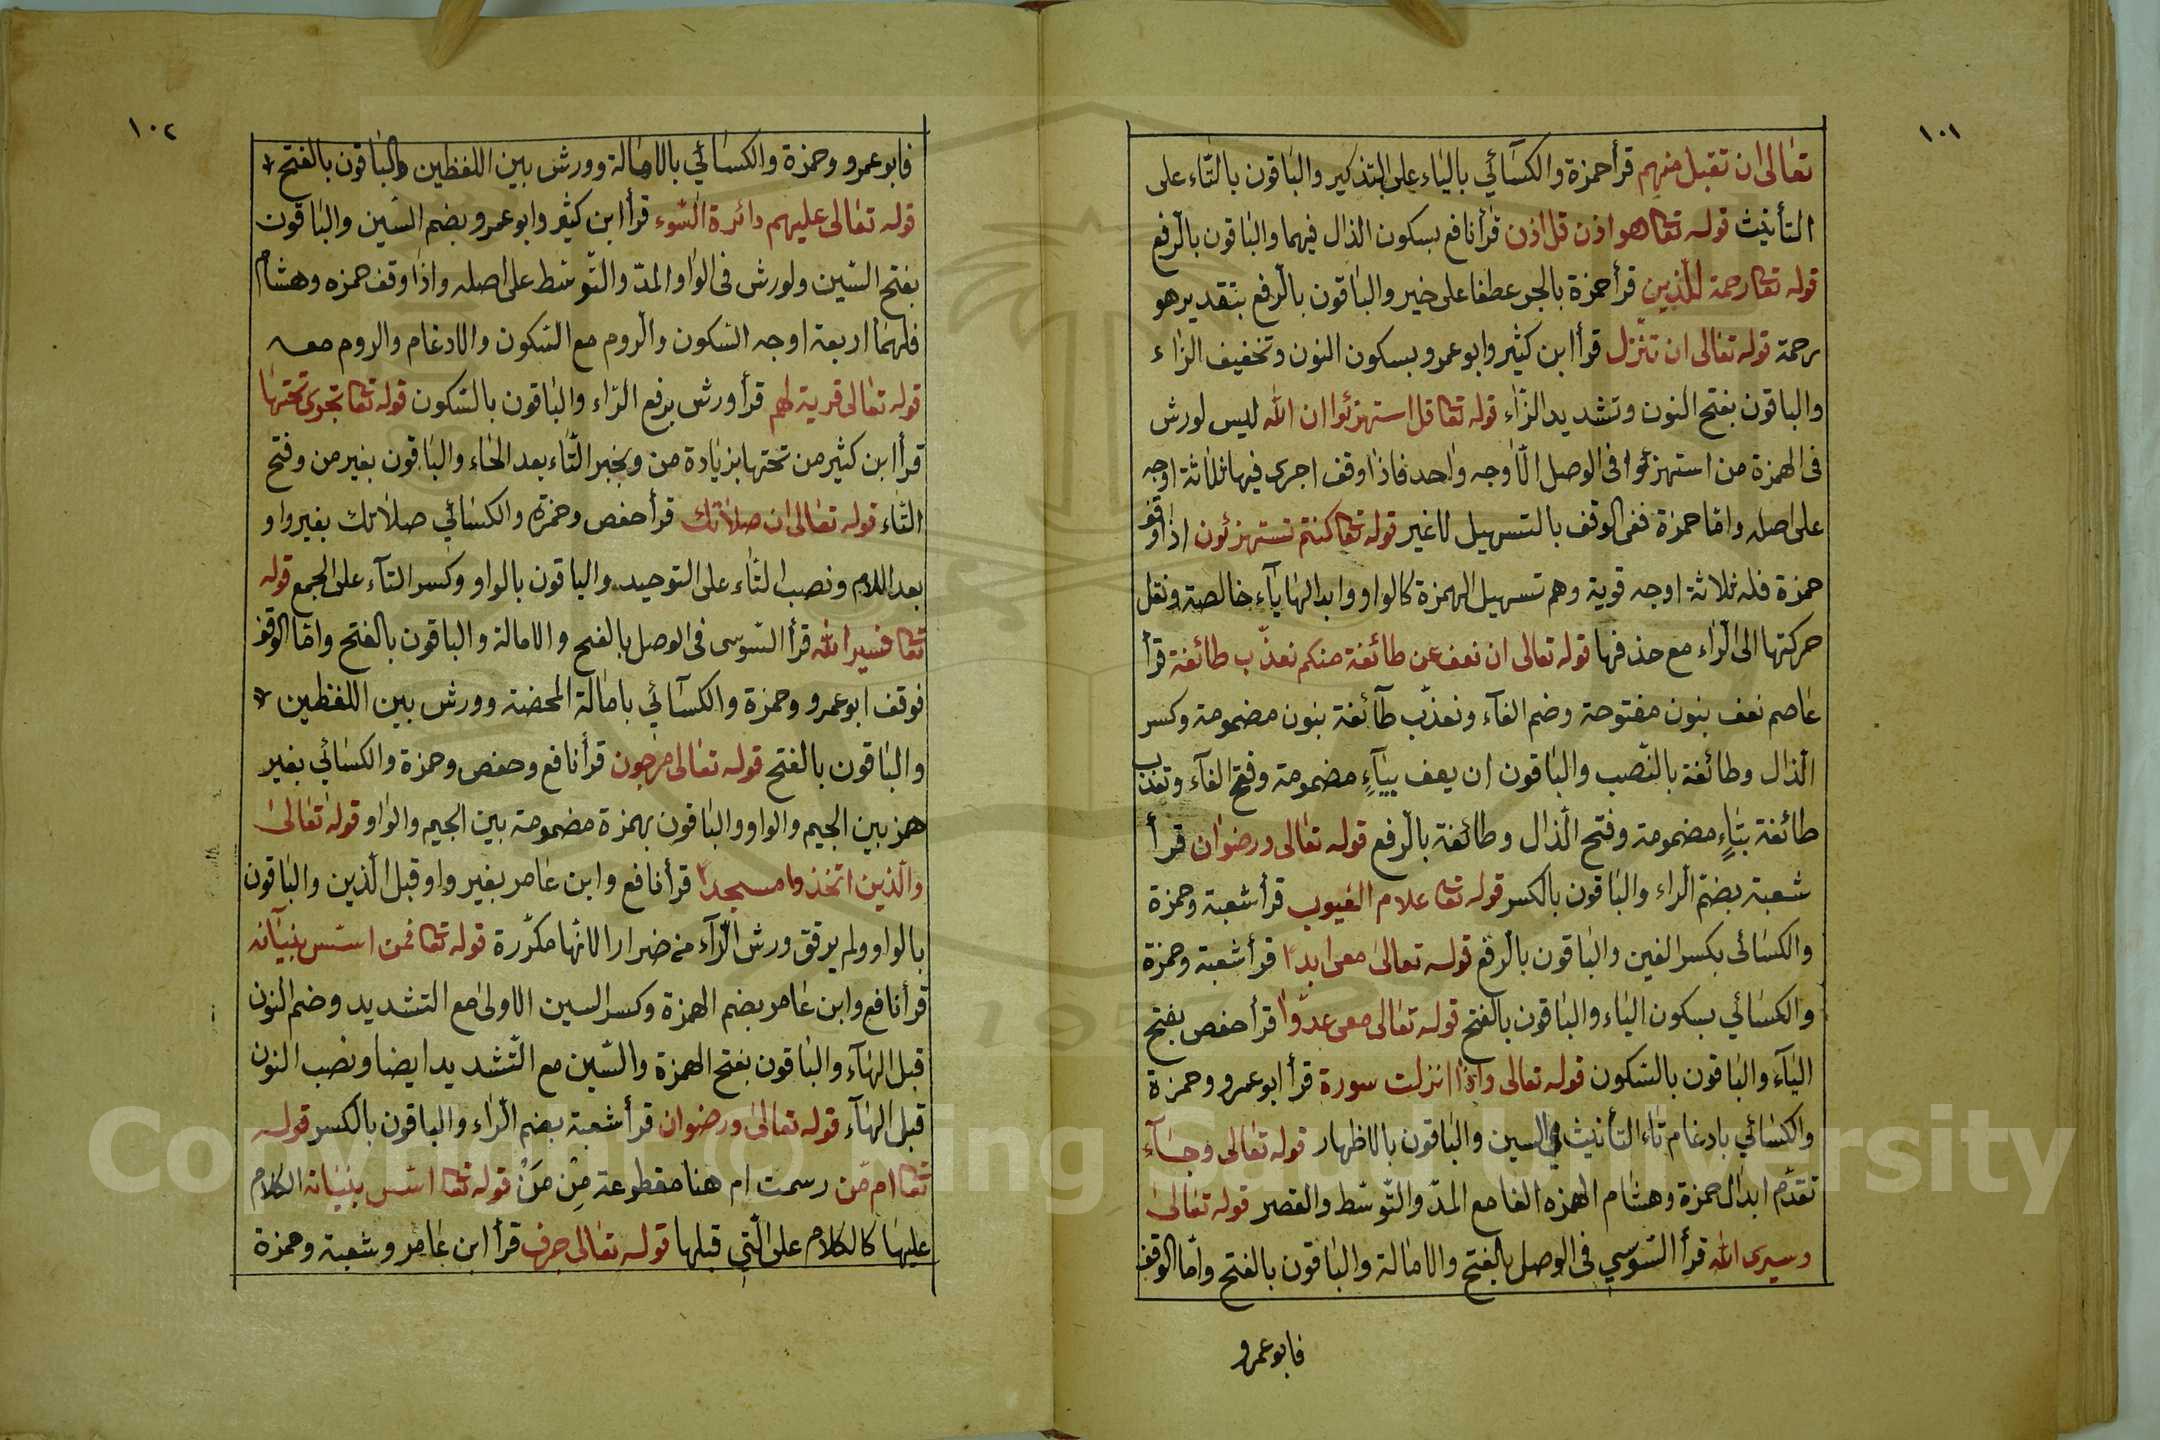 ١٠١
تعالى ان تقبل منهم قرأ حمزة والكسائي بالياء على التذكير والباقون بالتاء على
التأنيث قوله تعا هو اذن قل اذن قرأ نافع بسكون الذال فيهما والباقون بالرفع
قوله تعا رحمة للذين قرأ حمزة بالجر عطفا على خير والباقون بالرفع بتقدير هو
رحمة قوله تعالى ان تنزل قرأ ابن كثير وابو عمرو بسكون النون وتخفيف الزاء
والباقون بفتح النون وتشديد الزاء قوله تعا قل استهزئوا ان الله ليس لورش
فى الهمزة من استهزئوا فى الوصل الا وجه واحد فاذا وقف اجرى فيها ثلاثة اوجه
على اصله واما حمزة ففى الوقف بالتسهيل لا غير قوله تعا كنتم تستهزئون اذا وقف
حمزة فله ثلاثة اوجه قوية وهم تسهيل الهمزة كالواو وابدالها ياء خالصة ونقل
حركتها الى الراء مع حذفها قوله تعالى ان نعف عن طائفة منكم نعذب طائفة قرأ
عاصم نعف بنون مفتوحة وضم الفاء ونعذب طائفة بنون مضمومة وكسر
الذال وطائفة بالنصب والباقون ان يعف بياء مضمومة وفتح الفاء وتعذب
طائفة بتاء مضمومة وفتح الذال وطائفة بالرفع قوله تعالى ورضوان قرأ
شعبة بضم الراء والباقون بالكسر قوله تعا علام الغيوب قرأ شعبة وحمزة
والكسائى بكسر الغين والباقون بالرفع قوله تعالى معى ابدا قرأ شعبة وحمزة
والكسائي بسكون الياء والباقون بالفتح قوله تعالى معى عدوا قرأ حفص بفتح
الياء والباقون بالسكون قوله تعالى واذا انزلت سورة قرأ ابو عمرو وحمزة
والكسائي بادغام تاء التأنيث في السين والباقون بالاظهار قوله تعالى وجاء
تقدم ابدال حمزة وهشام الهمزه الفا مع المد والتوسط والقصر قوله تعالى
وسيرى الله قرأ السوسي فى الوصل بالفتح والامالة والباقون بالفتح واما الوقف
فابو عمرو
١٠٢
فابو عمرو وحمزة والكسائي بالامالة وورش بين اللفظين والباقون بالفتح
قوله تعالى عليهم دائرة السوء قرأ ابن كثير وابو عمرو بضم السين والباقون
بفتح السين ولورش فى الواو المد والتوسط على اصله واذا وقف حمزه وهشام
فلهما اربعة اوجه السكون والروم مع السكون والادغام والروم معه
قوله تعالى قربة لهم قرأ ورش برفع الراء والباقون بالسكون قوله تعا تجرى تحتها
قرأ ابن كثير من تحتها بزيادة من وبجر التاء بعد الحاء والباقون بغير من وفتح
التاء قوله تعالى ان صلاتك قرأ حفص وحمزة والكسائي صلاتك بغير واو
بعد اللام ونصب التاء على التوحيد والباقون بالواو وكسر التاء على الجمع قوله
تعا فسيرا الله قرأ السوسى فى الوصل بالفتح والامالة والباقون بالفتح واما الوقف
فوقف ابو عمرو وحمزة والكسائي بامالة المحضة وورش بين اللفظين
والباقون بالفتح قوله تعالى مرجون قرأ نافع وحفص وحمزة والكسائي بغير
همز بين الجيم والواو والباقون بهمزة مضمومة بين الجيم والواو قوله تعالى
والذين اتخذوا مسجدا قرأ نافع وابن عامر بغير واو قبل الذين والباقون
بالواو ولم يرقق ورش الراء من ضرارا لانها مكررة قوله تعا فمن اسس بنيانه
قرأ نافع وابن عامر بضم الهمزة وكسر السين الاولى مع التشديد وضم النون
قبل الهاء والباقون بفتح الهمزة والسين مع التشديد ايضا ونصب النون
قبل الهاء قوله تعالى ورضوان قرأ شعبة بضم الراء والباقون بالكسر قوله
تعا ام من رسمت ام هنا مقطوعة مِنْ مَنْ قوله تعا اسس بنيانه الكلام
عليها كالكلام على التي قبلها قوله تعالى جرف قرأ ابن عامر وشعبة وحمزة
Copyright © King Saud University